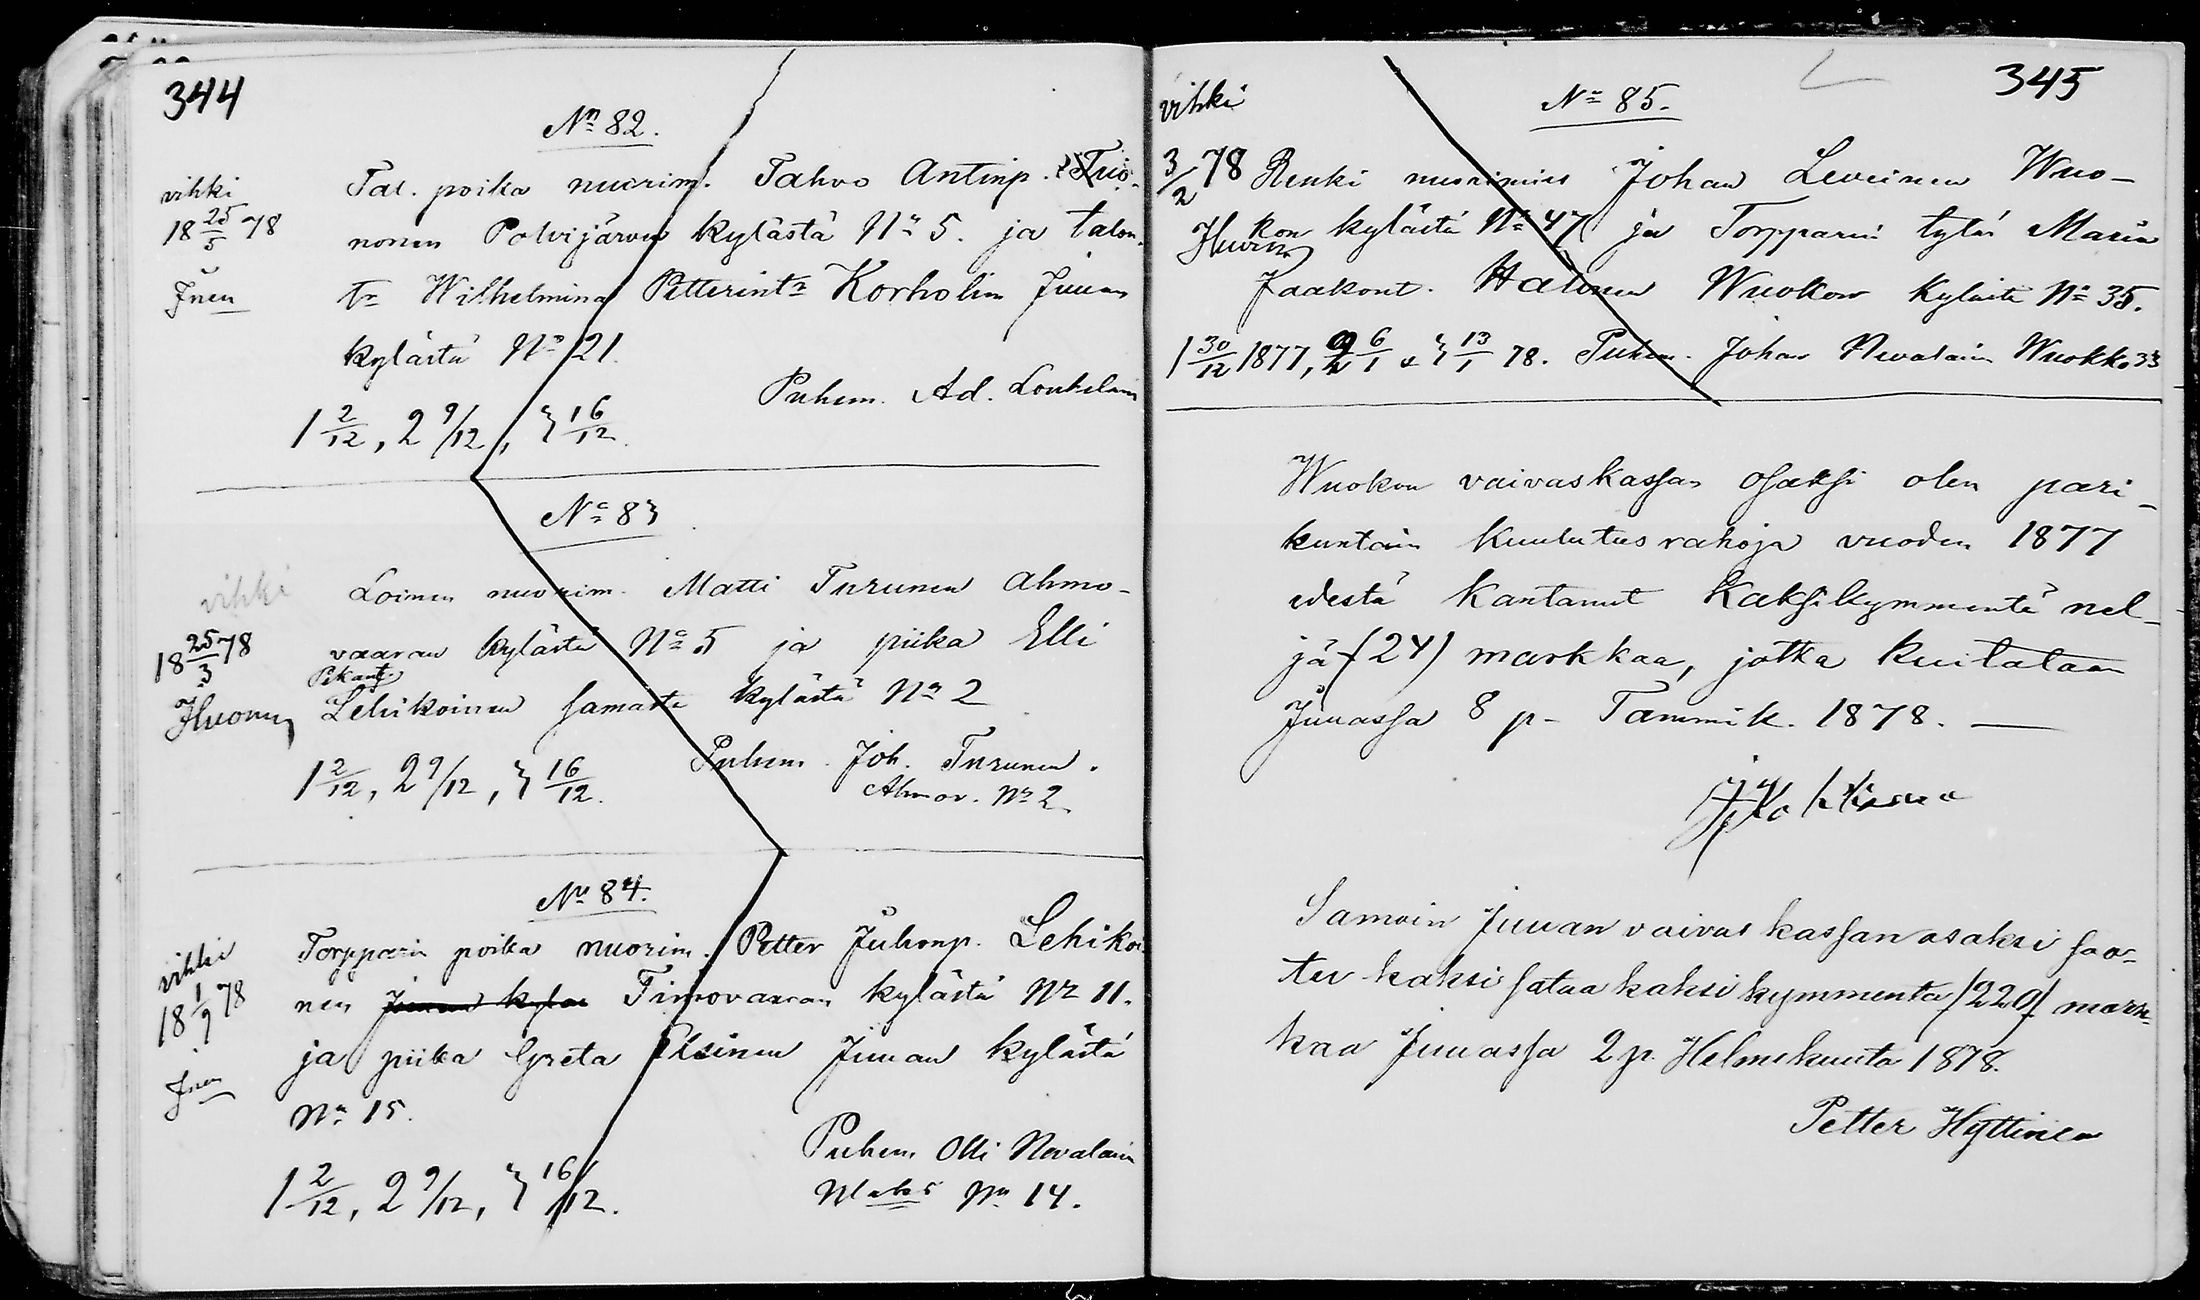 344
No 82.
vihki
18 25/5 78
Jnen
Tal. poika nuorim. Tahvo Antinp. Tuo-
nonen Polvijärven kylästä No 5. ja talon
tr Wilhelmina Petterintr Korholin Juuan
kylästä No 21.
Puhem. Ad. Loukelain
1 2/12, 2 9/12, 3 16/12.
No 83
vihki
18 25/3 78
Loinen nuorim. Matti Turunen Ahmo-
vaaran kylästä No 5 ja piika Elli
Pekant.
Lehikoinen samasta kylästä No 2
Puhem. Joh. Turunen.
Ahmov. No 2
1 2/12, 2 9/12, 3 16/12.
No 84.
vihki
18 1/9 78
Jnen
Torpparin poika nuorim. Petter Juhonp. Lehikoi
nen Juuan kylän Timovaaran kylästä No 11.
ja piika Greta Piisinen Juuan kylästä
No 15.
Puhem Olli Nevalain
No 14.
1 2/12, 2 9/12, 3 16/12.
345
vihki
3/2 78
No 85.
Renki nuorimies Johan Leveinen Wuo-
kon kylästä No 47 ja Torpparin tytär Maria
Jaakont. Halonen Wuokon kylästä No 35.
1 30/12 1877, 2 6/1 & 3 13/1 78. Puhem. Johan Nevalain Wuokko 33
Wuokon vaivaskassan osaksi olen pari-
kuntain kuulutusrahoja vuoden 1877
edestä kantanut kaksikymmentä nel-
jä (24) markkaa, jotka kuitataan
Juuassa 8 p- Tammik. 1878. —
Samoin Juuan vaivas kassan osaksi saa-
tu kaksi sataa kaksi kymmentä /220/ mark-
kaa Juuassa 2 p. Helmikuuta 1878.
Petter Hyttinen